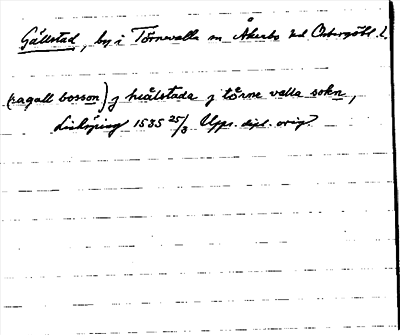 Gållstad, by i Törnevalla sn Åkerbo hd Östergötl. l.
(ragall bosson) j hiålstada j tårne valla sokn,
Linköping 1535 25/3 Upps. dipl. orig.